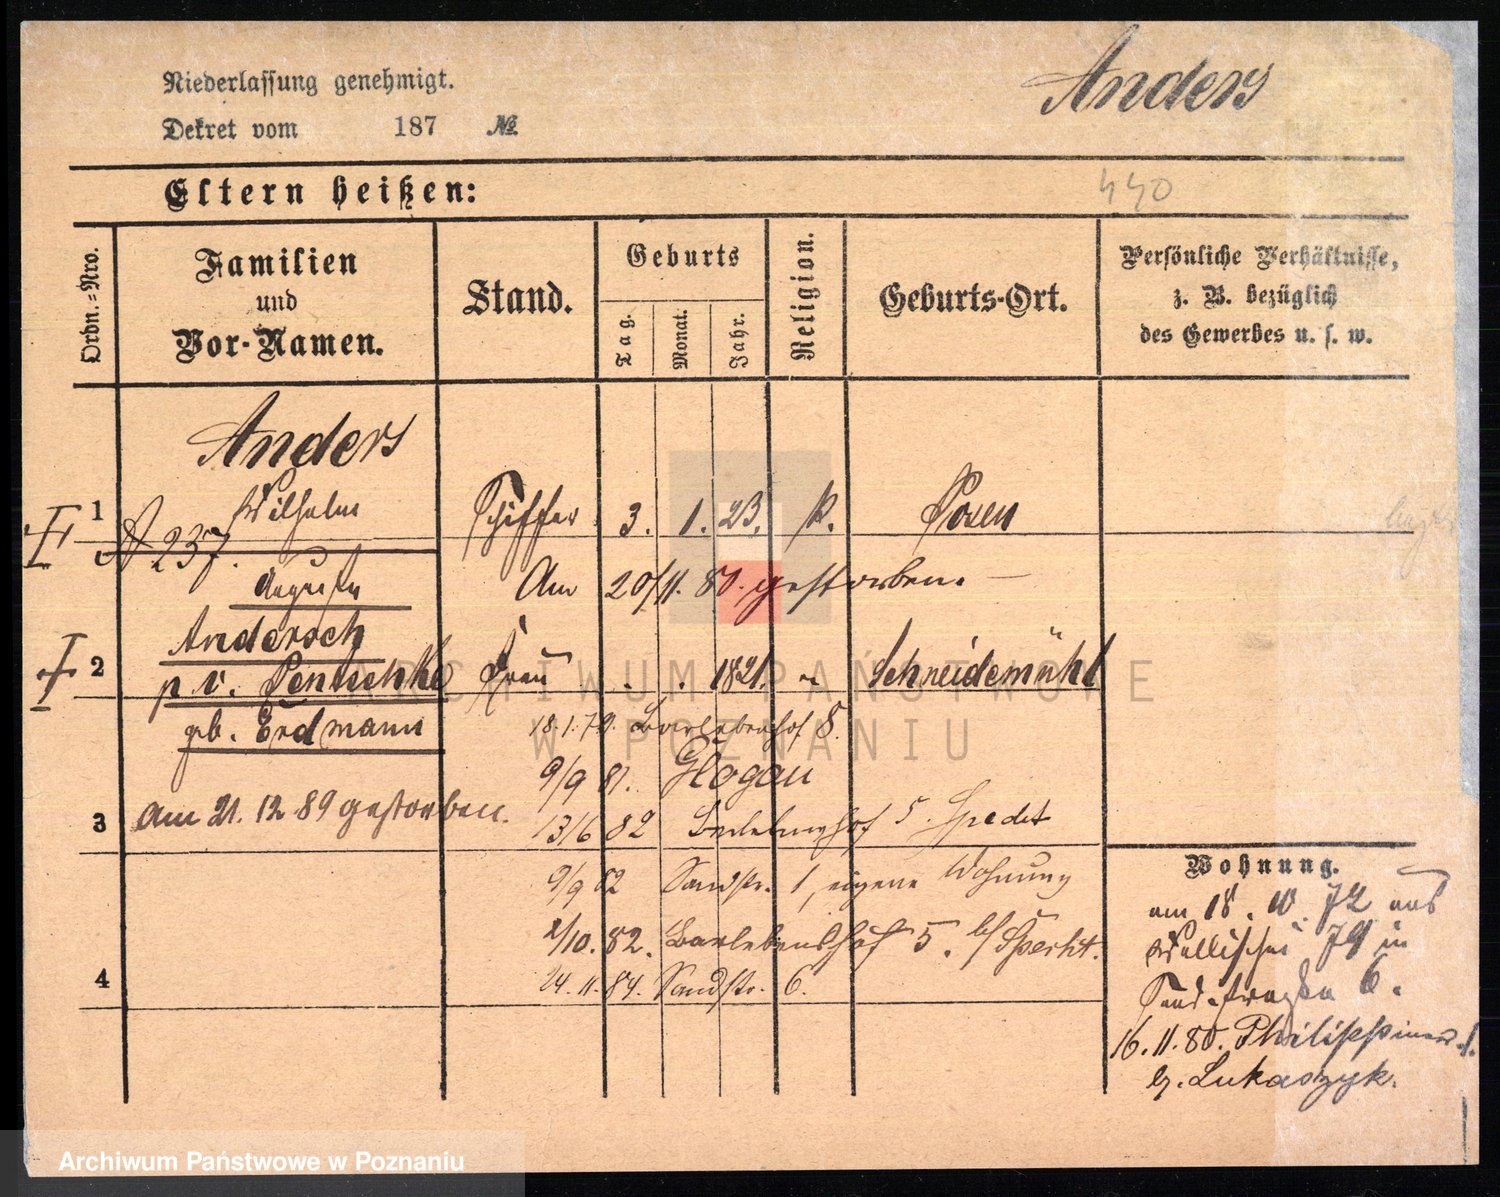 Niederlassung genehmigt.
Anders
Dekret vom 187 №
Eltern heißen:
440
Ordn.=Nro.
Familien
und
Vor-Namen.
Stand.
Geburts
Tag.
Monat.
Jahr.
Religion.
Geburts-Ort.
Persönliche Verhältnisse,
z. B. bezüglich
des Gewerbes u. s. w.
Anders
1 Wilhelm Schiffer 3. 1. 23. k. Posen
A 237.
Auguste Am 20/11. 80. gestorben. —
Andersch
2 p. v. Pentschke Frau 1821. " Schneidemühl
gb. Erdmann 18.1.79. 8.
9/9 81. Glogau
3 Am 21. 12 89 gestorben.
13/6 82 5.
9/9 82 Sandstr. 1, eigene Wohnung
2/10. 82. Barlebenshof 5. b/ Specht.
4 24. 11. 84. Sandstr. 6.
Wohnung.
am 18. 10. 72 aus
Wallischei 79 in
Sandstraße 6.
16. 11. 80. Philippinen
b. Lukaszyk.
ARCHIWUM PAŃSTWOWE
W POZNANIU
Archiwum Państwowe w Poznaniu